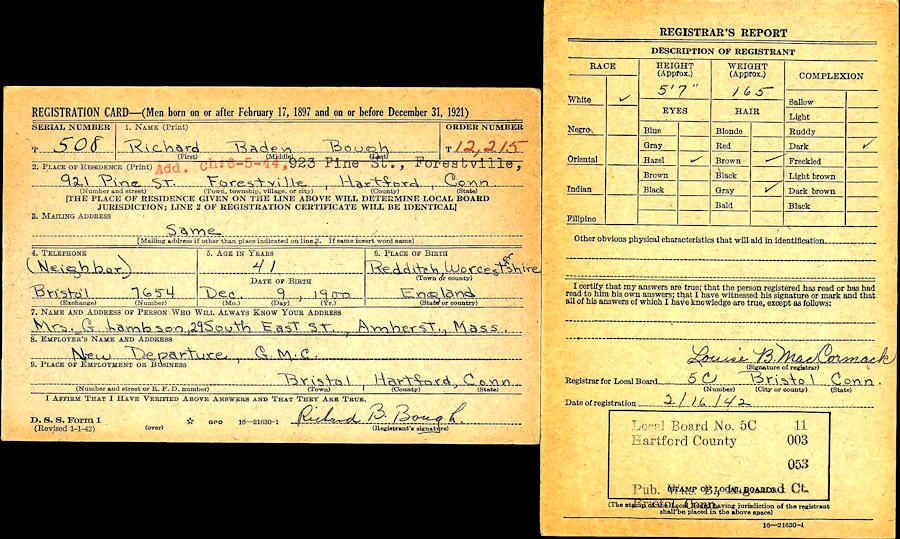 REGISTRATION CARD—(Men born on or after February 17, 1897 and on or before December 31, 1921)
SERIAL NUMBER 1. NAME (Print) ORDER NUMBER
T 508 Richard Baden Bough T 12,215
(First) (Middle) (Last)
2. PLACE OF RESIDENCE (Print) Add. Ch: 6-5-44, 923 Pine St., Forestville,
921 Pine St. Forestville, Hartford, Conn.
(Number and street) (Town, township, village, or city) (County) (State)
[THE PLACE OF RESIDENCE GIVEN ON THE LINE ABOVE WILL DETERMINE LOCAL BOARD
JURISDICTION; LINE 2 OF REGISTRATION CERTIFICATE WILL BE IDENTICAL]
3. MAILING ADDRESS
Same
[Mailing address if other than place indicated on line 2. If same insert word same]
4. TELEPHONE 5. AGE IN YEARS 6. PLACE OF BIRTH
(Neighbor) 41 Redditch, Worcestershire
DATE OF BIRTH (Town or county)
Bristol 7654 Dec. 9, 1900 England
(Exchange) (Number) (Mo.) (Day) (Yr.) (State or country)
7. NAME AND ADDRESS OF PERSON WHO WILL ALWAYS KNOW YOUR ADDRESS
Mrs. G. Lambson, 29 South East St., Amherst, Mass.
8. EMPLOYER'S NAME AND ADDRESS
New Departure, G.M.C.
9. PLACE OF EMPLOYMENT OR BUSINESS
Bristol, Hartford, Conn.
(Number and street or R. F. D. number) (Town) (County) (State)
I AFFIRM THAT I HAVE VERIFIED ABOVE ANSWERS AND THAT THEY ARE TRUE.
D. S. S. Form 1
(Revised 1-1-42) (over) ☆ GPO 16—21630-1 Richard B. Bough.
(Registrant's signature)
REGISTRAR'S REPORT
DESCRIPTION OF REGISTRANT
RACE HEIGHT (Approx.) WEIGHT (Approx.) COMPLEXION
5'7" 165
White ✓ EYES HAIR Sallow
Light
Negro Blue Blonde Ruddy
Gray Red Dark ✓
Oriental Hazel ✓ Brown ✓ Freckled
Brown Black Light brown
Indian Black Gray ✓ Dark brown
Bald Black
Filipino
Other obvious physical characteristics that will aid in identification
I certify that my answers are true; that the person registered has read or has had
read to him his own answers; that I have witnessed his signature or mark and that
all of his answers of which I have knowledge are true, except as follows:
Louise B. MacCormack
(Signature of registrar)
Registrar for Local Board 5C Bristol Conn.
(Number) (City or county) (State)
Date of registration 2/16/42
Local Board No. 5C 11
Hartford County 003
053
Pub. Wks. B Ct.
STAMP OF LOCAL BOARD
Bristol, Conn.
(The stamp of the Local Board having jurisdiction of the registrant
shall be placed in the above space)
16—21630-1